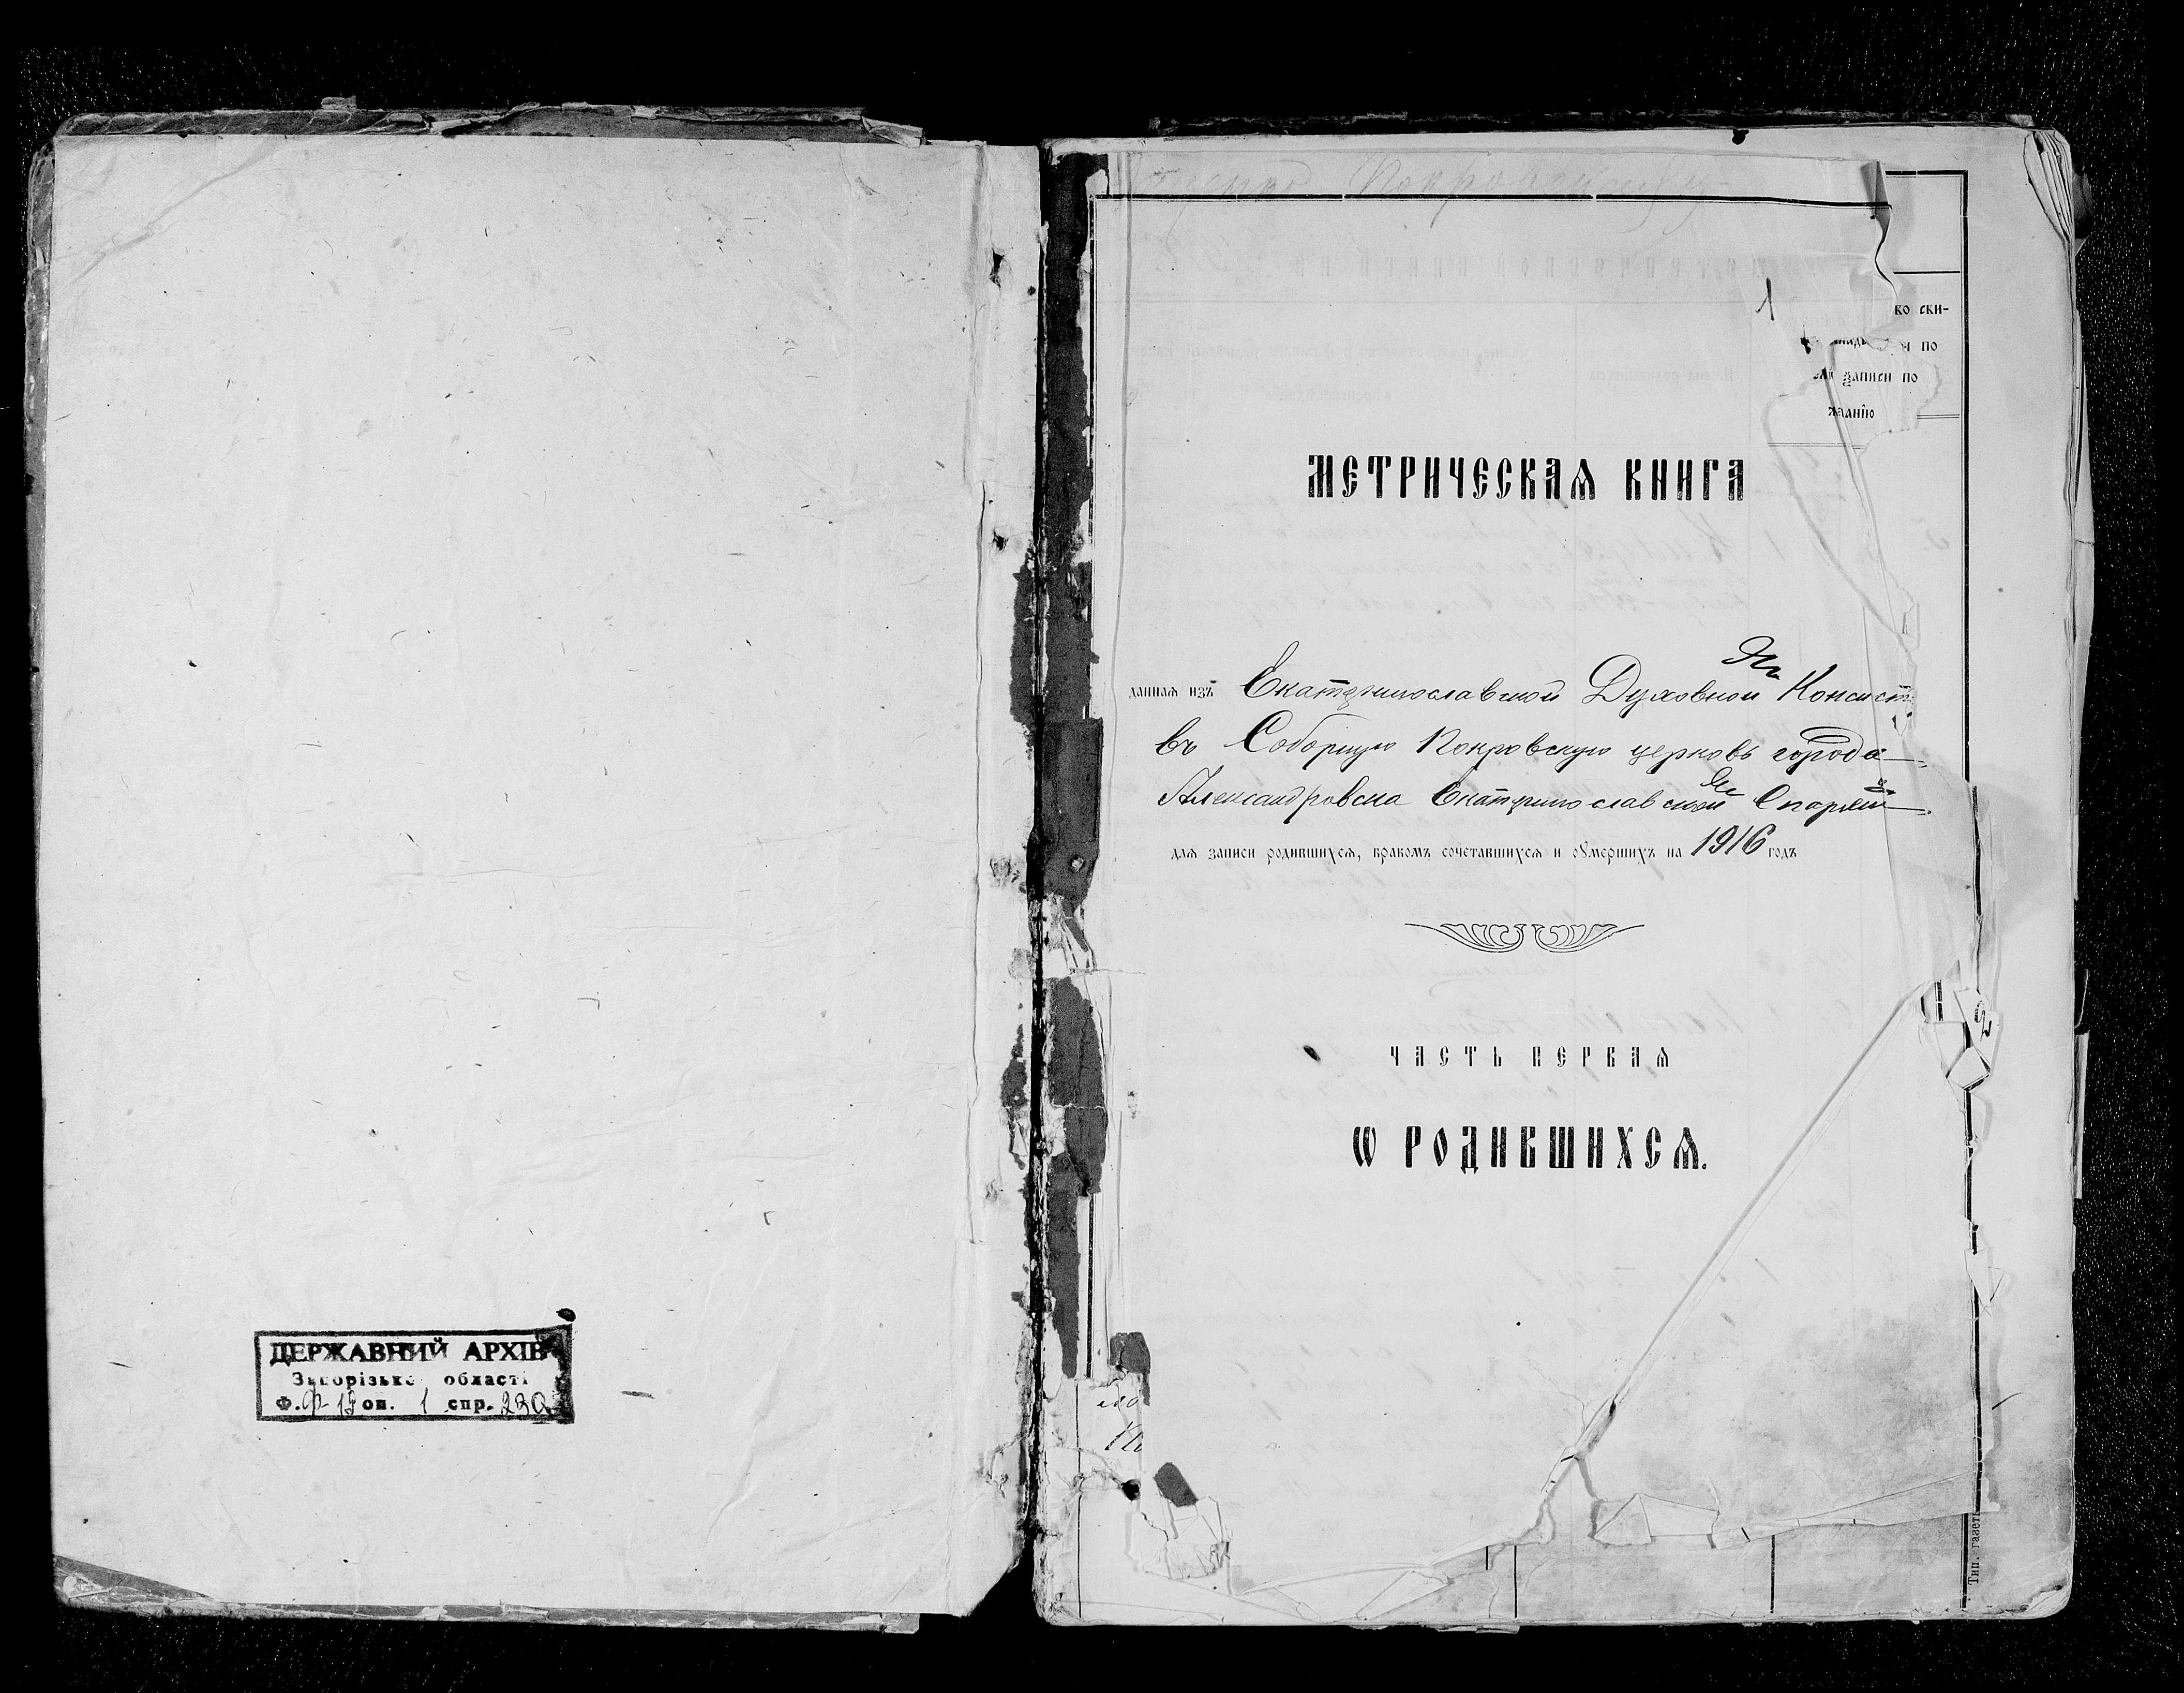 ДЕРЖАВНИЙ АРХІВ
Запорізької області
Ф. Ф-19 оп. 1 спр.
1
ко сви-
и по
записи по
желанїю
МЕТРИЧЕСКАѦ КНИГА
даннаѧ изъ Екатеринославской Духовной Консист
въ Соборную Покровскую церковь города
Александровска Екатеринославской Епархіи
длѧ записи родившихсѧ, бракомъ сочетавшихсѧ и оумершихъ на 1916 годъ
ЧАСТЬ ПЕРВАѦ
Ѡ РОДИВШИХСѦ.
Тип. газеты